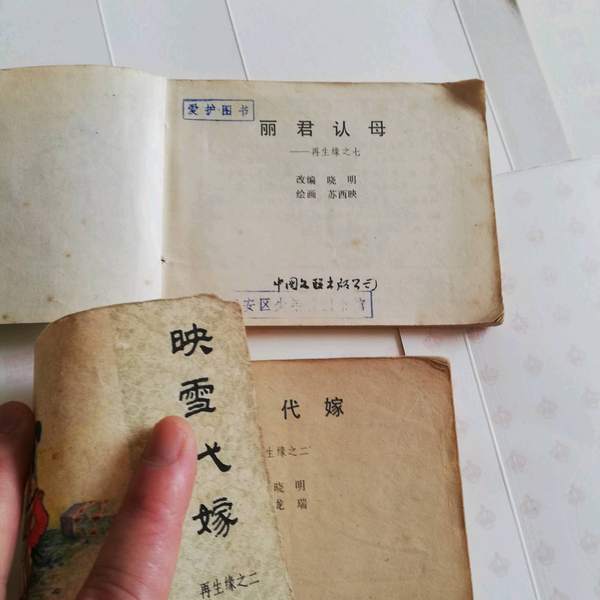 爱护图书
丽君认母
——再生缘之七
改编 晓明
绘画 苏西映
中国文联出版公司
安区少
映雪代嫁
再生缘之二
代嫁
生缘之二
晓明
龙瑞